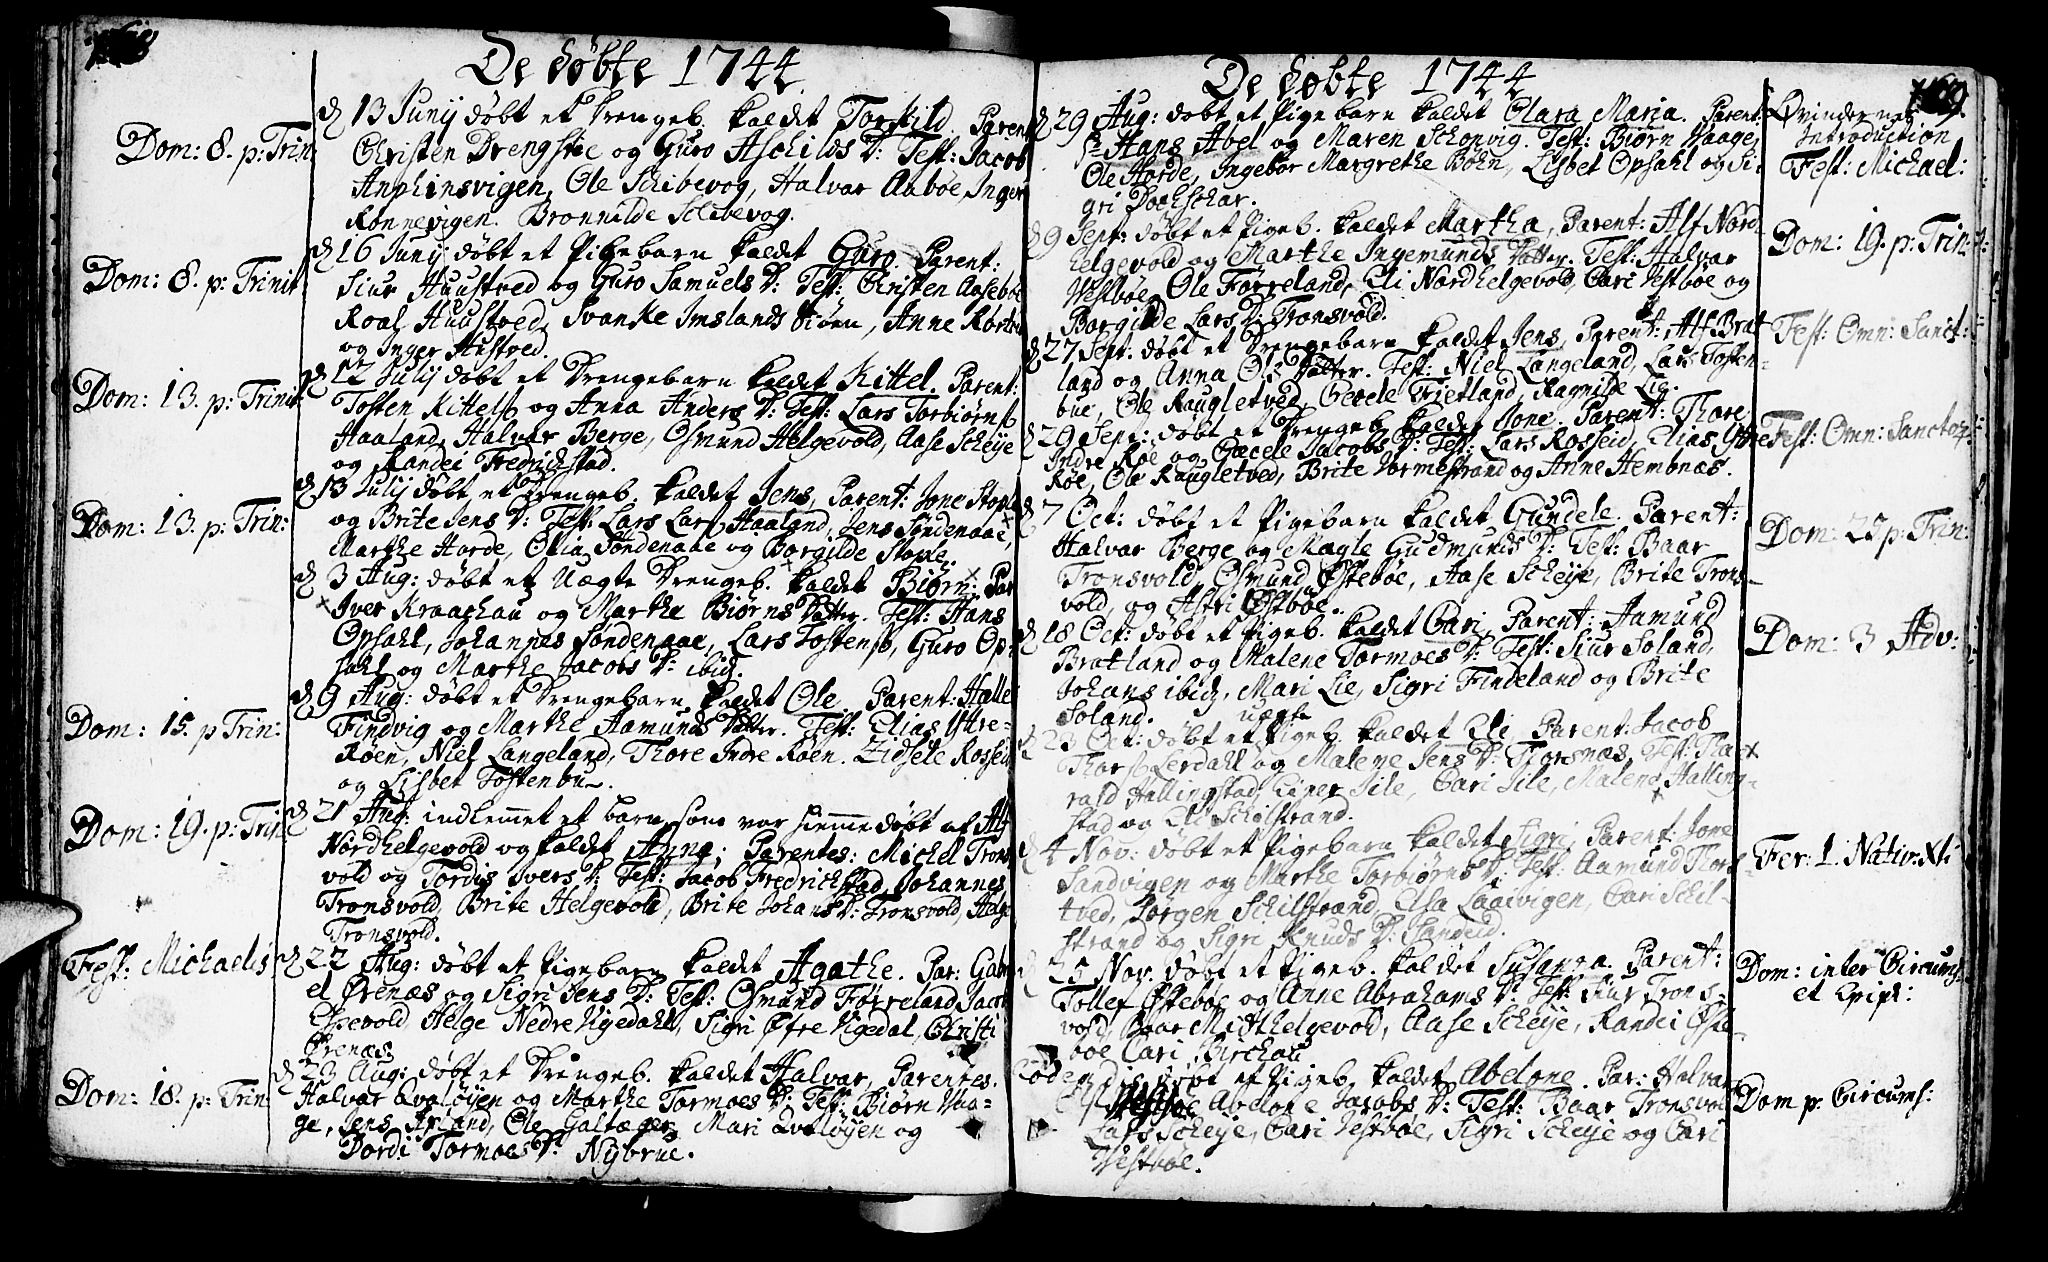 168
De Døbte 1744
Dom: 8. p: Trin:
d 13 Junij døbt et Drengeb. kaldet Torskild. Parent
Christen Drengstøe og Guro Aschilds D: Test: Jacob
Anphinsvigen, Ole Schibevog, Halvar Aabøe, Inger
Rønnevigen. Bronnilde Schibevog.
Dom: 8. p: Trinit
d 16 Junij døbt et Pigebarn kaldet Guro Parent:
Siur Huustved og Guro Samuels D: Test: Christen Aasebøe
Roal Huustved, Svanke Imslands Siøen, Anne
og Inger Hustved.
Dom: 13. p: Trinit:
d 12 Julij døbt et Drengebarn kaldet Kittel. Parent:
Tosten Kittels og Anna Anders D: Test: Lars Torbiørns
Haaland, Halvar Berge, Osmund Helgevold, Aase Scheije
og Randei Fredrichstad.
Dom: 13. p: Trin:
d 13 Julij døbt et Drengeb. kaldet Jens, Parent: Jone Stople
og Brite Jens D: Test: Lars Lars Haaland, Jens Søndenaae,
Marthe Horde, Olia Søndenaae og Borgilde Stople.
d 3 Aug: døbt et Uægte Drengeb. kaldet Biørn: Par
Iver Kraachau og Marthe Biørns Datter. Test: Hans
Opsahl, Johannes Søndenaae, Lars Tostens, Guro Op-
sahl og Marthe Jacobs D: ibid.
Dom: 15. p Trin:
d 9 Aug: døbt et Drengebarn kaldet Ole. Parent: Halle
Findvig og Marthe Aamunds Datter. Test: Elias Ytre-
Røen, Niel Langeland, Thore Indre Røen. Zidsele Rosseid
og Lisbet Tostenbu.
Dom: 19. p: Trin:
d 21 Aug: indlemmet et barn, som var hiemmedøbt af Alf
Nordhelgevold og kaldet Anna; Parentes: Michel Trons
vold og Tordis Ivers D: Test: Jacob Fredrichstad, Johannes
Tronsvold, Brite Helgevold, Brite Johans D: Tronsvold, Helge
Tronsvold.
Fest: Michaelis
d 22 Aug: døbt et Pigebarn kaldet Agathe. Par: Gabri
el Ørenæs og Sigri Jens D: Test: Osmund Førreland, Jacob
Espevold, Helge Nedre Vigedahl, Sigri Øfre Vigedal, Christi
Ørenæs.
Dom: 18. p: Trin:
d 23 Aug: døbt et Drengeb. kaldet Halvar, Parentes.
Halvar Qvaløyen og Marthe Tormoes D: Test: Biørn Vaa-
ge, Jens Arland, Ole Galtager, Mari Qvaløyen og
Dordi Tormoes D: Nybrue.
169
De Døbte 1744
Qvindernes
Introduction
d 29 Aug: døbt et Pigebarn kaldet Clara Maria. Parent:
Sr Hans Abel og Maren Schonvig. Test: Biørn Vaage,
Ole Horde, Ingebor Margrethe Bohn, Lisbet Opsahl og Si-
gri Dochschar.
Fest: Michael:
d 9 Sept: døbt et Pigeb. kaldet Martha, Parent: Alf Nord-
helgevold og Marthe Ingemunds Datter. Test: Halvar
Vestbøe, Ole Førreland, Eli Nordhelgevold, Cari Vestbøe og
Borgilde Lars D: Tronsvold.
Dom: 19. p: Trin:
d 27 Sept: døbt et Drengebarn kaldet Jens, Parent: Alf Brat
land og Anna Ols Datter. Test: Niel Langeland, Lars Tosten-
bue, Ole Raugletved, Gecele Frietland, Ragnilde Lie.
Fest: Omn: Sanct:
d 29 Sept: døbt et Drengeb. kaldet Jone, Parent: Thore
Indre Røe og Gecele Jacobs D: Test: Lars Rosseid, Elias Yttre
Røe, Ole Raugletved, Brite Vormestrand og Anne Hembnæs.
Fest: Omn: Sanctor:
d 7 Oct: døbt et Pigebarn kaldet Gundele. Parent:
Halvar Berge og Magle Gudmunds D: Test: Baar
Tronsvold, Osmund Østebøe, Aase Scheije, Brite Trons-
vold, og Astri Østbøe.
Dom: 25 p: Trin:
d 18 Oct: døbt et Pigeb. kaldet Cari, Parent: Aamund
Bratland og Malene Tormoes D: Test: Siur Soland,
Johans ibid, Mari Lie, Sigri Findeland og Brite
Soland.
Dom: 3 Adv:
uægte
d 23 Oct: døbt et Pigeb. kaldet Eli, Parent: Jacob
Thors Lerdahl og Malene Jens D: Thorsnæs, Test: Tha-
rald Hallingstad, Einer Sile, Cari Sile, Malene Halling-
stad og Eli Schilstrand.
d 4 Nov: døbt et Pigebarn kaldet Sigri, Parent: Jone
Sandvigen og Marthe Torbiørns D: Test: Aamund Thors-
tved, Jørgen Schilstrand, Elsa Laadvigen, Cari Schil-
strand og Sigri Knuds D: Sandeid.
Fer: 1. Nativ: Xti
d 25 Nov. døbt et Pigeb. kaldet Susanna. Parent:
Tollef Østebøe og Anne Abrahams D: Test: Siur Trons-
vold, Baar Midthelgevold, Aase Scheije, Randei Øste-
bøe Cari Birchau
Dom: inter Circums:
et Epiph:
døbt et Pigeb. kaldet Abelone. Par: Halvar
Vestbøe Abelone Jacobs D: Test: Baar Tronsvold
Lars Scheije, Cari Vestbøe, Sigri Scheije og Cari
Vestbøe.
Dom p: Circums: